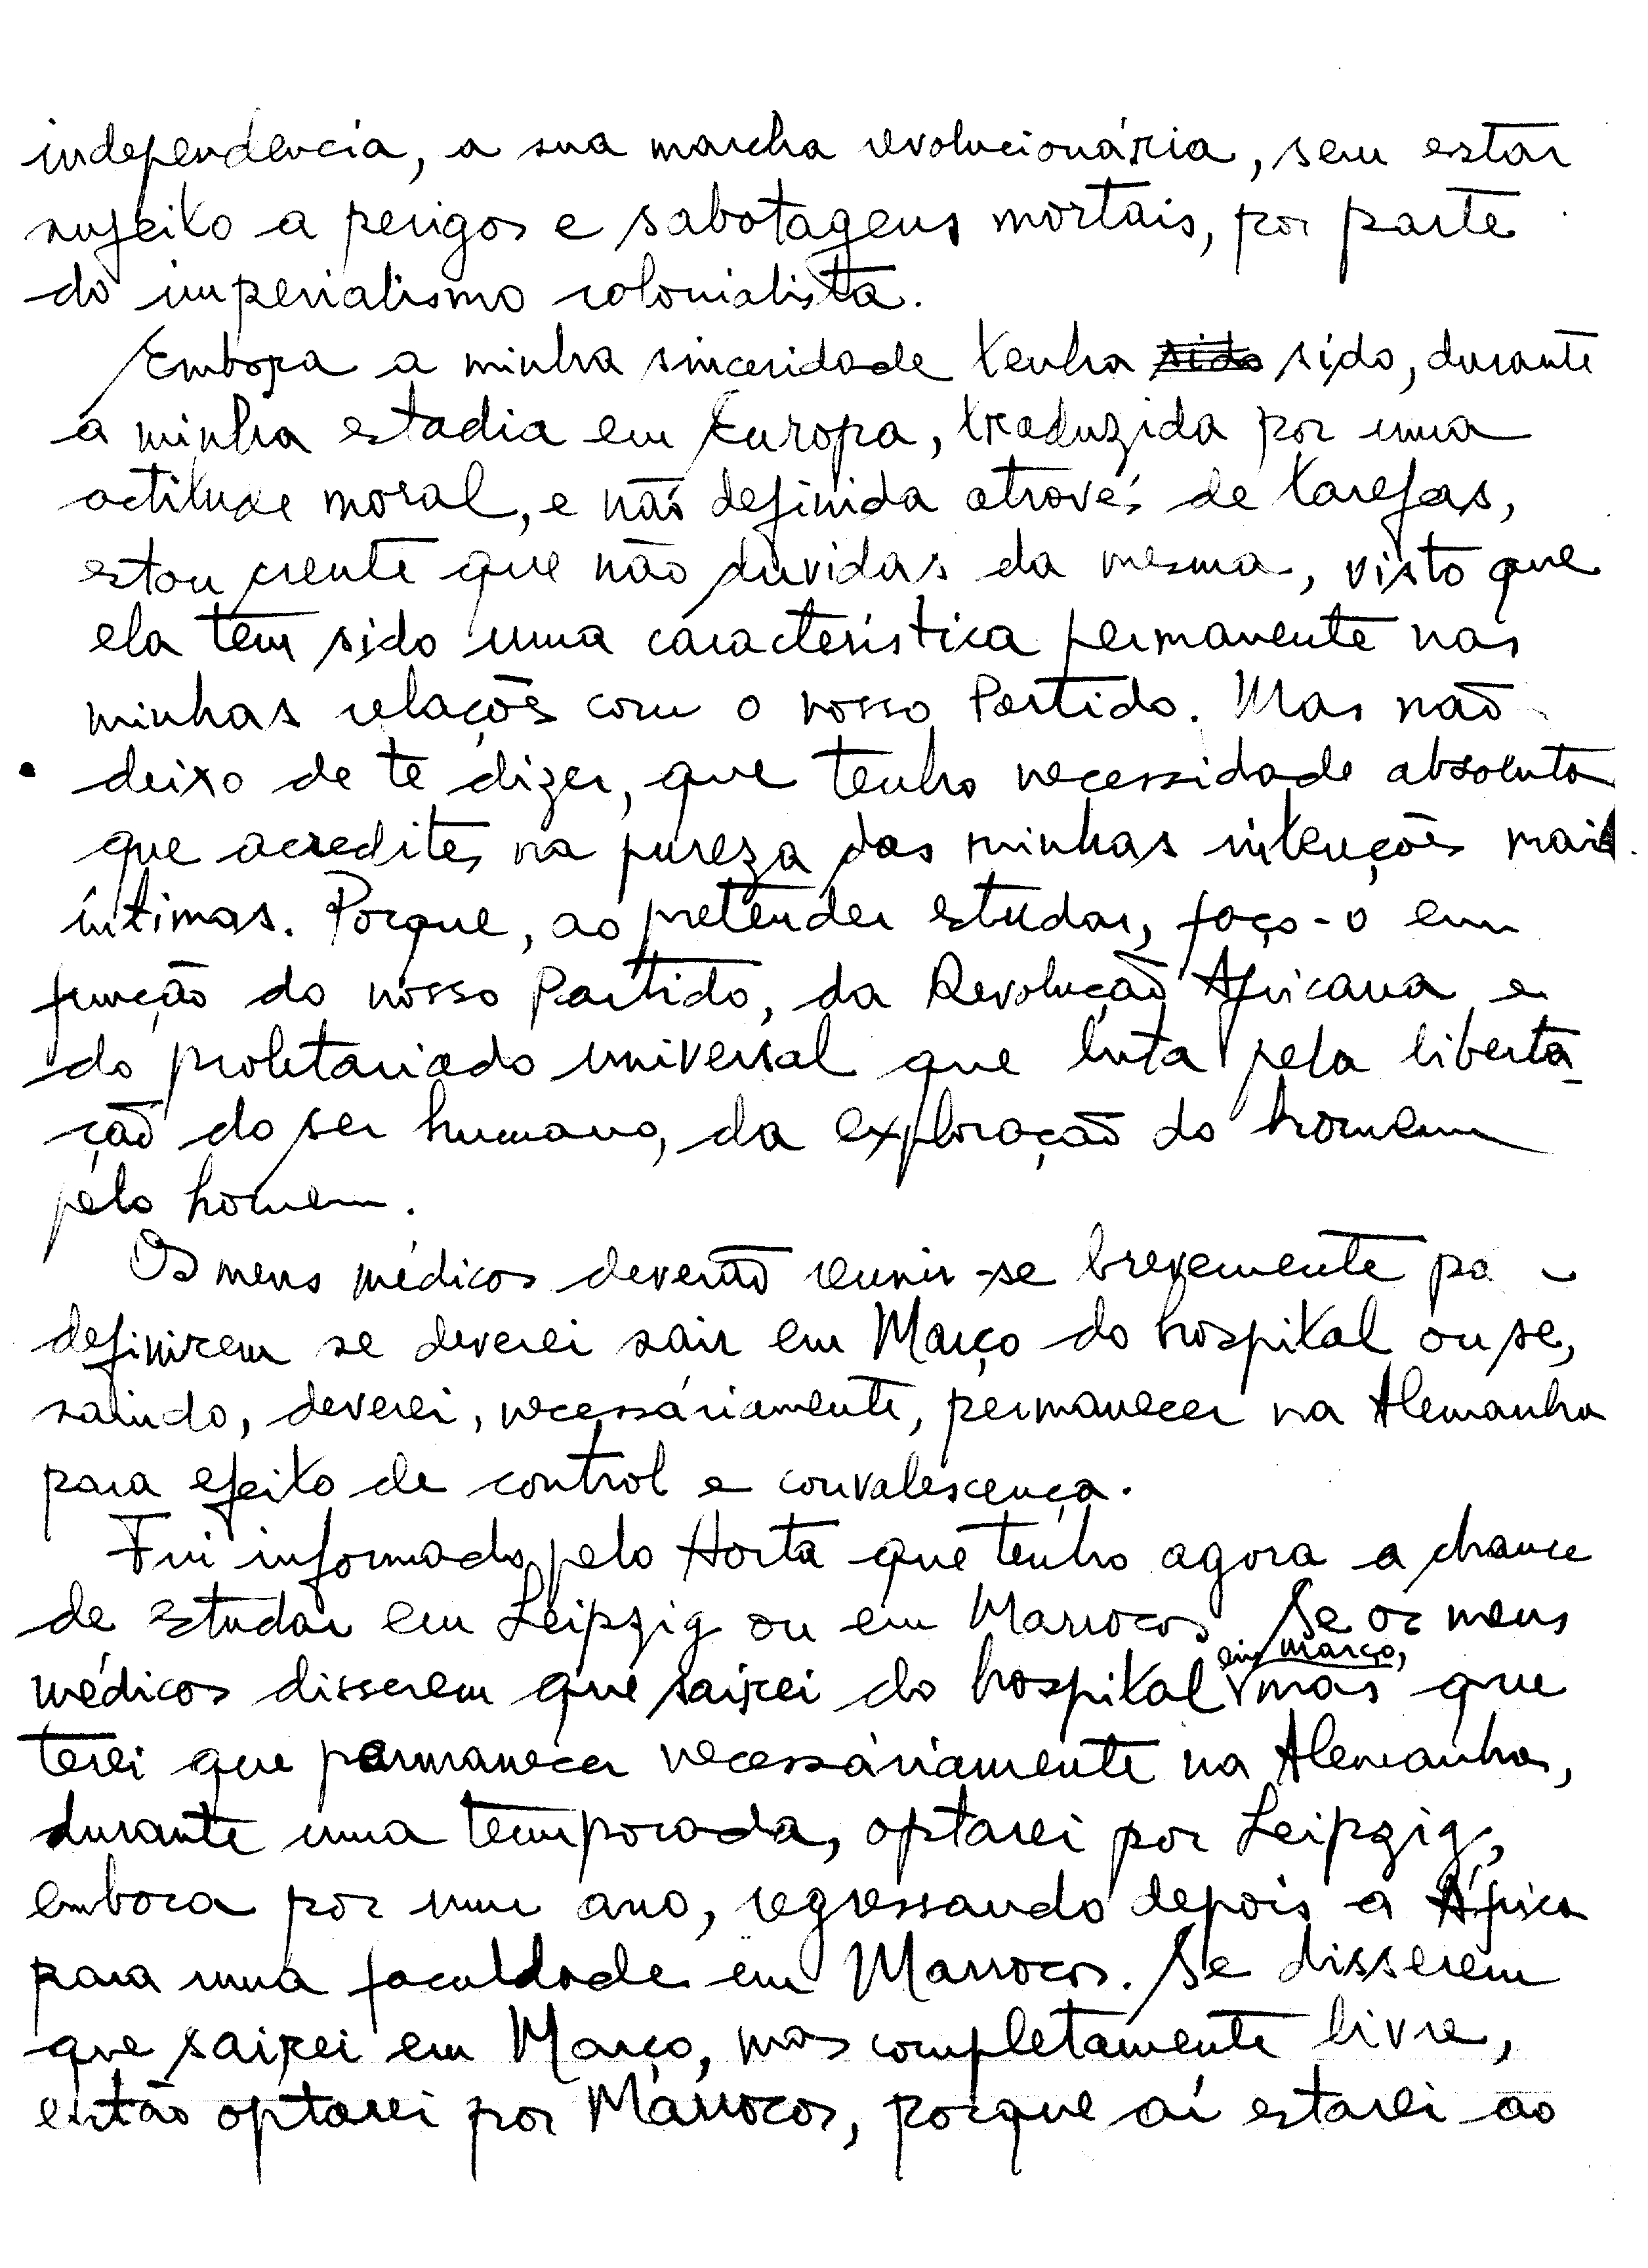 independencia, a sua marcha revolucionária, sem estar
sujeito a perigos e sabotagens mortais, por parte
do imperialismo colonialista.
Embora a minha sinceridade tenha sido sido, durante
a minha estadia em Europa, traduzida por uma
actitude moral, e não definida atravéz de tarefas,
estou crente que não duvidas da mesma, visto que
ela tem sido uma caracterìstica permanente nas
minhas relações com o nosso Partido. Mas não
deixo de te dizer, que tenho necessidade absoluta
que acredites na pureza das minhas intenções mais
íntimas. Porque, ao pretender estudar, faço-o em
função do nosso Partido, da Revolução Africana e
do proletariado universal que luta pela liberta-
ção do ser humano, da exploração do homem
pelo homem.
Os meus médicos deverão reunir-se brevemente pa
definirem se deverei sair em Março do hospital ou se,
saindo, deverei, necessáriamente, permanecer na Alemanha
para efeito de control e convalescença.
Fui informado pelo Horta que tenho agora a chance
de estudar em Leipzig ou em Marrocos. Se os meus
médicos disserem que sairei do hospital em março, mas que
terei que permanecer necessáriamente na Alemanha,
durante uma temporada, optarei por Leipzig,
embora por um ano, regressando depois a África
para uma faculdade em Marrocos. Se disserem
que sairei em Março, mas completamente livre,
então optarei por Marrocos, porque aí estarei ao